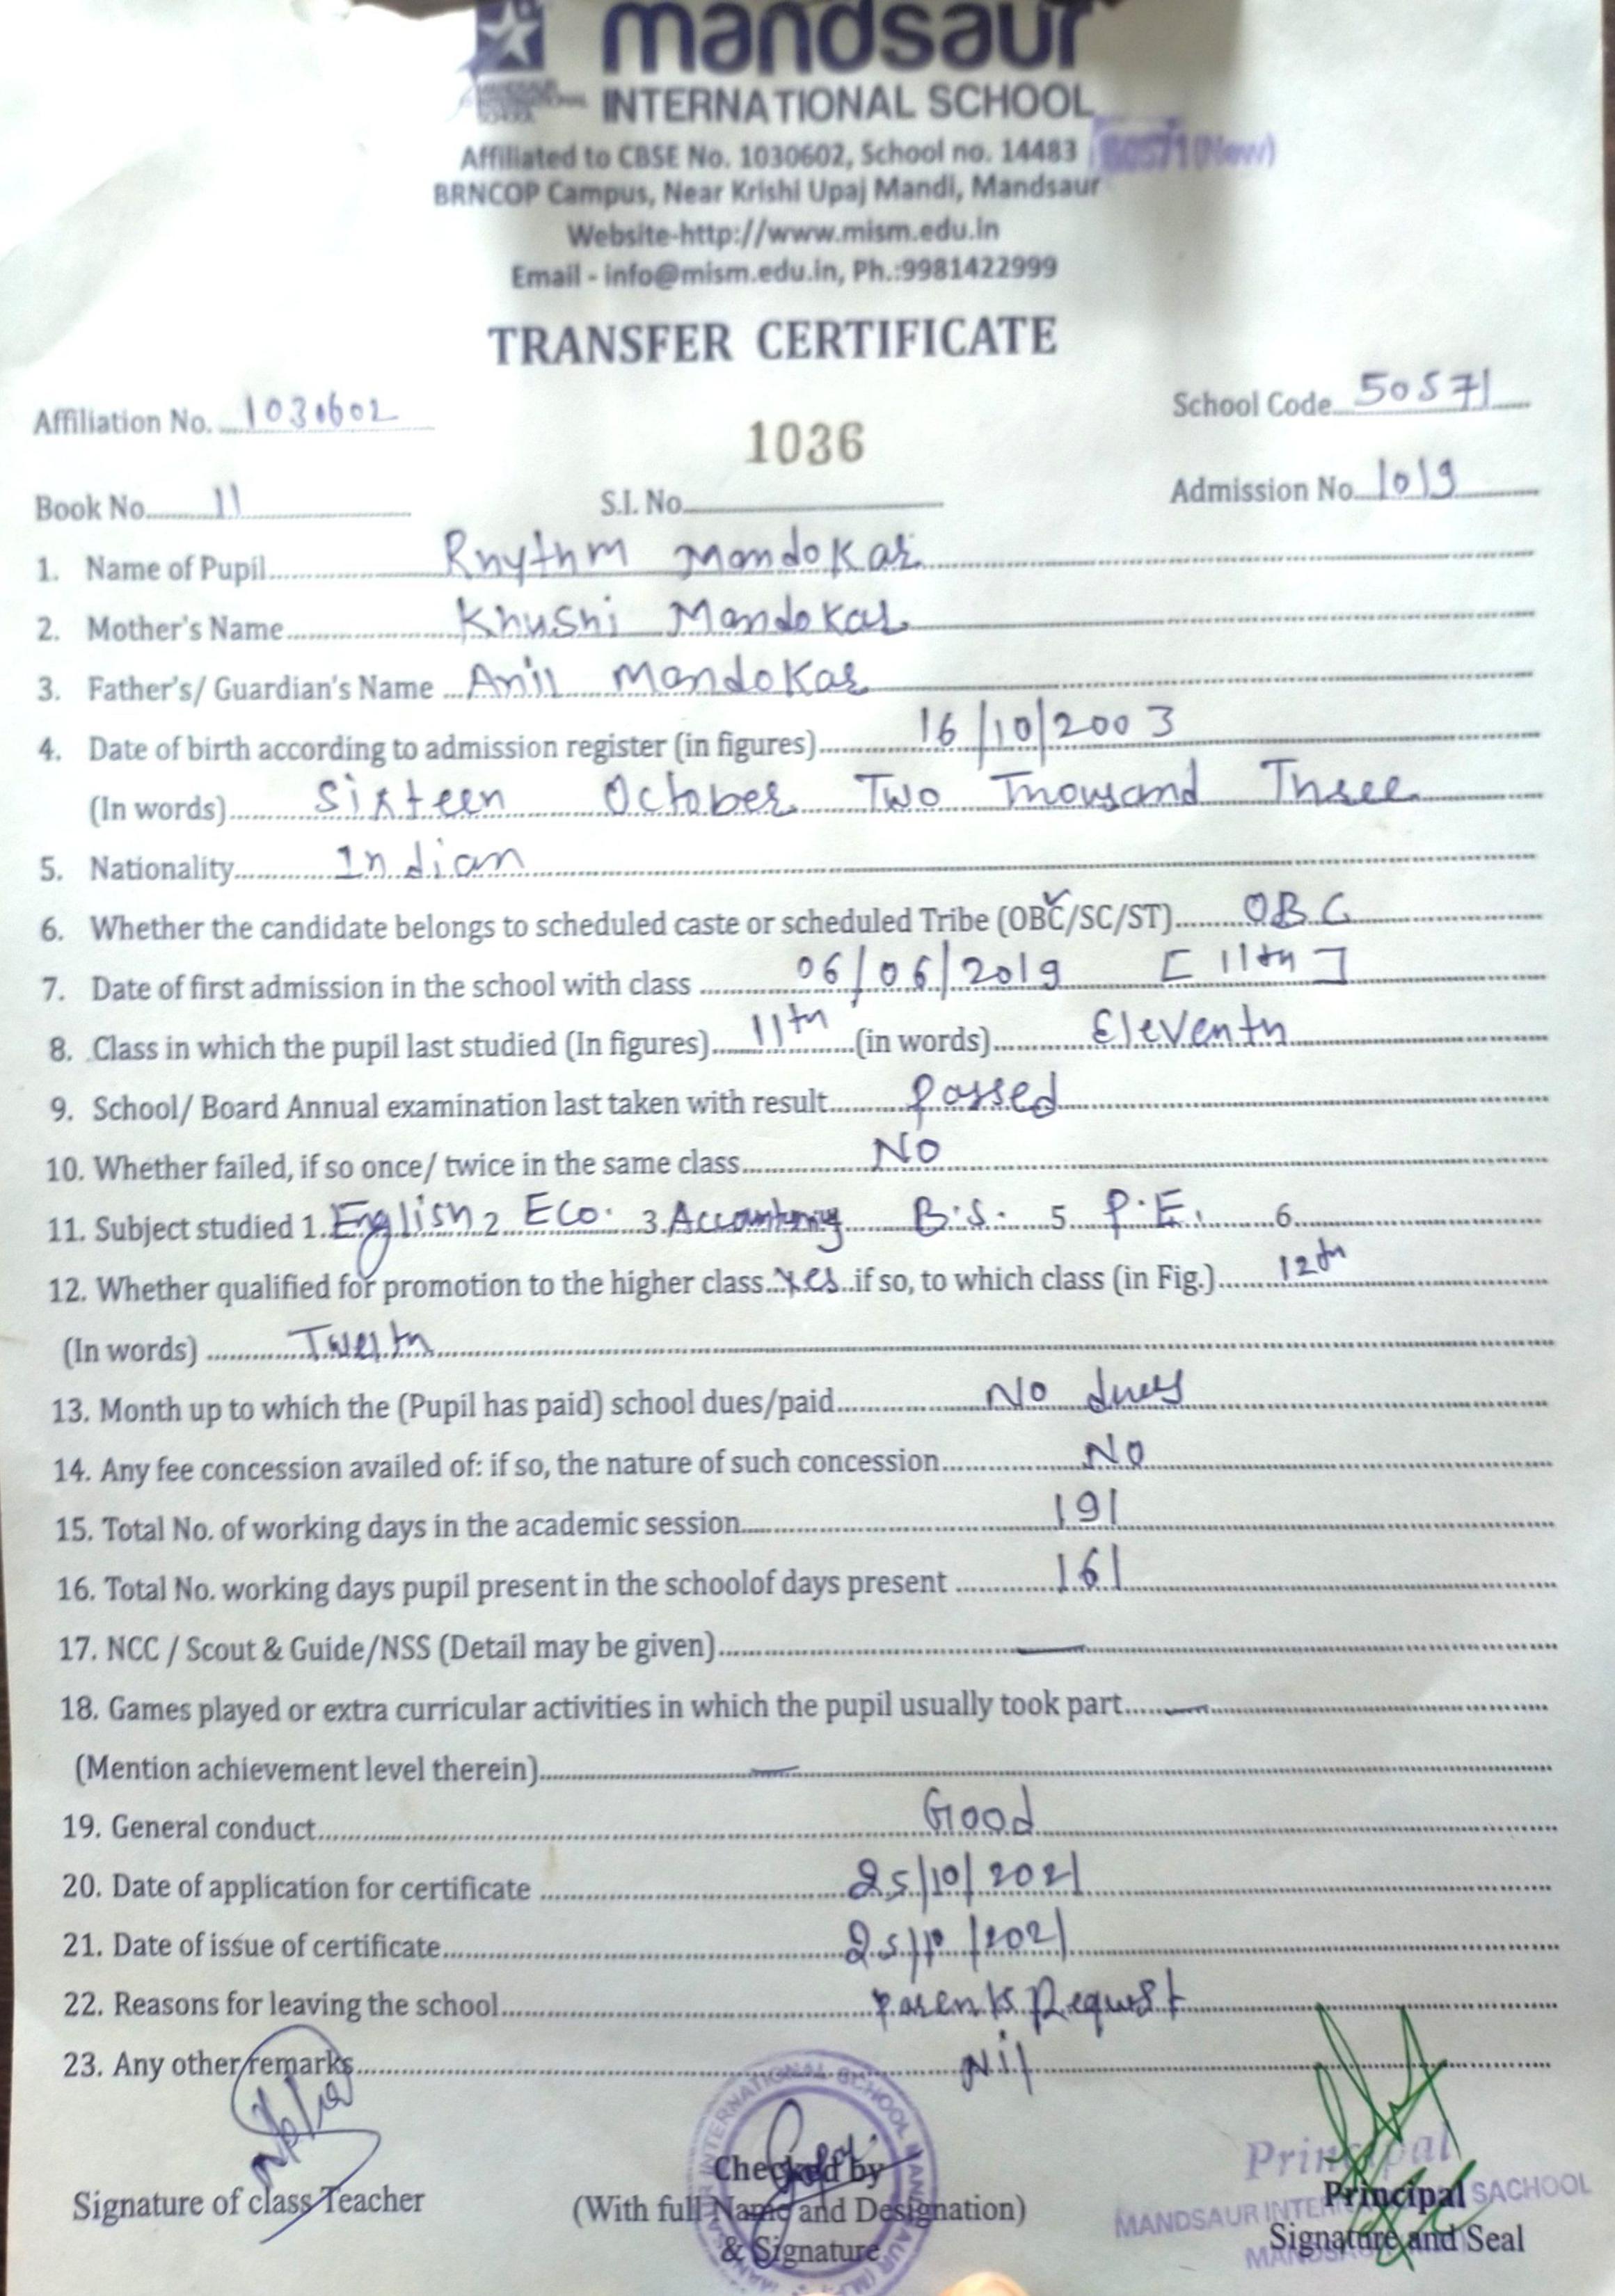 mandsaur
INTERNATIONAL SCHOOL
Affiliated to CBSE No. 1030602, School no. 14483 50571(New)
BRNCOP Campus, Near Krishi Upaj Mandi, Mandsaur
Website-http://www.mism.edu.in
Email - info@mism.edu.in, Ph.:9981422999
TRANSFER CERTIFICATE
Affiliation No. 1030602 School Code 50571
1036
Book No. 11 S.I. No. Admission No. 1019
1. Name of Pupil Rhythm Mandokar
2. Mother's Name Khushi Mandokar
3. Father's/ Guardian's Name Anil Mandokar
4. Date of birth according to admission register (in figures) 16/10/2003
(In words) Sixteen October Two Thousand Three
5. Nationality Indian
6. Whether the candidate belongs to scheduled caste or scheduled Tribe (OBC/SC/ST) OBC
7. Date of first admission in the school with class 06/06/2019 [11th]
8. Class in which the pupil last studied (In figures) 11th (in words) Eleventh
9. School/ Board Annual examination last taken with result Passed
10. Whether failed, if so once/ twice in the same class No
11. Subject studied 1. English 2 Eco. 3. Accounting 4 B.S. 5 P.E. 6
12. Whether qualified for promotion to the higher class Yes if so, to which class (in Fig.) 12th
(In words) Twelth
13. Month up to which the (Pupil has paid) school dues/paid No dues
14. Any fee concession availed of: if so, the nature of such concession No
15. Total No. of working days in the academic session 191
16. Total No. working days pupil present in the schoolof days present 161
17. NCC / Scout & Guide/NSS (Detail may be given) —
18. Games played or extra curricular activities in which the pupil usually took part —
(Mention achievement level therein) —
19. General conduct Good
20. Date of application for certificate 25/10/2021
21. Date of issue of certificate 25/10/2021
22. Reasons for leaving the school Parents Request
23. Any other remarks Nil
Principal
Checked by Principal
MANDSAUR INTERNATIONAL SACHOOL
Signature of class Teacher (With full Name and Designation) Signature and Seal
& Signature